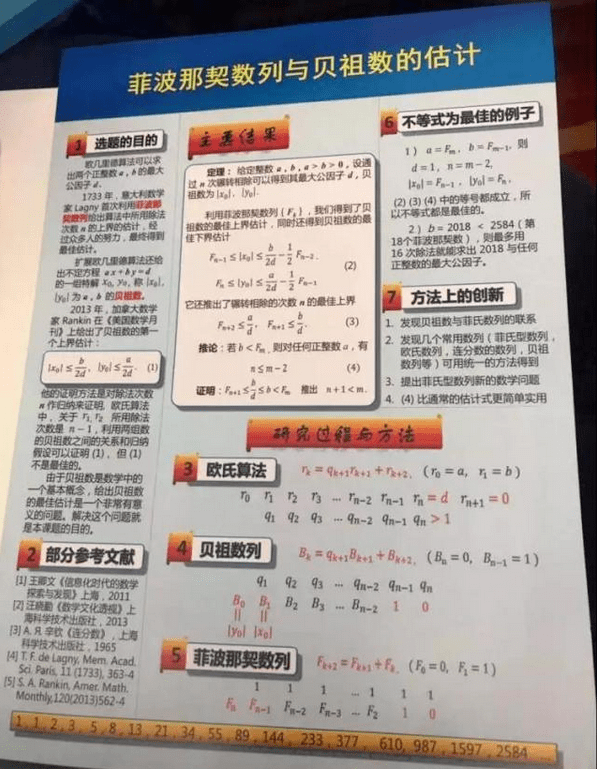 菲波那契数列与贝祖数的估计
1 选题的目的
欧几里德算法可以求
出两个正整数 a, b 的最大
公因子 d.
1733 年,意大利数学
家 Lagny 首次利用菲波那
契数列给出算法中所用除法
次数 n 的上界的估计,经
过众多人的努力,最终得到
最佳估计。
扩展欧几里德算法还给
出不定方程 ax + by = d
的一组特解 x₀, y₀, 称 |x₀|,
|y₀| 为 a, b 的贝祖数。
2013 年,加拿大数学
家 Rankin 在《美国数学月
刊》上给出了贝祖数的第一
个上界估计:
|x₀| ≤ b/2d, |y₀| ≤ a/2d. (1)
他的证明方法是对除法次数
n 作归纳来证明, 欧氏算法
中,关于 r₁, r₂ 所用除法
次数是 n − 1, 利用两组数
的贝祖数之间的关系和归纳
假设可以证明 (1)、但 (1)
不是最佳的。
由于贝祖数是数学中的
一个基本概念,给出贝祖数
的最佳估计是一个非常有意
义的问题。解决这个问题就
是本课题的目的。
2 部分参考文献
[1] 王卿文《信息化时代的数学
探索与发现》上海,2011
[2] 汪晓勤《数学文化透视》上
海科学技术出版社,2013
[3] А. Я. 辛钦《连分数》,上海
科学技术出版社,1965
[4] T. F. de Lagny, Mem. Acad.
Sci. Paris, 11 (1733), 363-4
[5] S. A. Rankin, Amer. Math.
Monthly,120(2013)562-4
主要结果
定理: 给定整数 a, b, a > b > 0, 设通
过 n 次辗转相除可以得到其最大公因子 d, 贝
祖数为 |x₀|, |y₀|.
利用菲波那契数列 {Fₖ}, 我们得到了贝
祖数的最佳上界估计,同时还得到贝祖数的最
佳下界估计
Fₙ₋₁ ≤ |x₀| ≤ b/2d − 1/2 Fₙ₋₂.
(2)
Fₙ ≤ |y₀| ≤ a/2d − 1/2 Fₙ₋₁
它还推出了辗转相除的次数 n 的最佳上界
Fₙ₊₂ ≤ a/d, Fₙ₊₁ ≤ b/d. (3)
推论: 若 b < Fₘ, 则对任何正整数 a, 有
n ≤ m − 2 (4)
证明: Fₙ₊₁ ≤ b/d ≤ b < Fₘ 推出 n + 1 < m.
6 不等式为最佳的例子
1) a = Fₘ, b = Fₘ₋₁, 则
d = 1, n = m − 2,
|x₀| = Fₙ₋₁, |y₀| = Fₙ,
(2) (3) (4) 中的等号都成立,所
以不等式都是最佳的。
2) b = 2018 < 2584 (第
18个菲波那契数),则最多用
16 次除法就能求出 2018 与任何
正整数的最大公因子。
7 方法上的创新
1. 发现贝祖数与菲氏数列的联系
2. 发现几个常用数列(菲氏型数列,
欧氏数列,连分数的数列,贝祖
数列等)可用统一的方法得到
3. 提出菲氏型数列新的数学问题
4. (4) 比通常的估计式更简单实用
研究过程与方法
3 欧氏算法 rₖ = qₖ₊₁rₖ₊₁ + rₖ₊₂, (r₀ = a, r₁ = b)
r₀ r₁ r₂ r₃ … rₙ₋₂ rₙ₋₁ rₙ = d rₙ₊₁ = 0
q₁ q₂ q₃ … qₙ₋₂ qₙ₋₁ qₙ > 1
4 贝祖数列 Bₖ = qₖ₊₁Bₖ₊₁ + Bₖ₊₂, (Bₙ = 0, Bₙ₋₁ = 1)
q₁ q₂ q₃ … qₙ₋₂ qₙ₋₁ qₙ
B₀ B₁ B₂ B₃ … Bₙ₋₂ 1 0
|| ||
|y₀| |x₀|
5 菲波那契数列 Fₖ₊₂ = Fₖ₊₁ + Fₖ, (F₀ = 0, F₁ = 1)
1 1 1 … 1 1 1
Fₙ Fₙ₋₁ Fₙ₋₂ Fₙ₋₃ … F₂ 1 0
1, 1, 2, 3, 5, 8, 13, 21, 34, 55, 89, 144, 233, 377, 610, 987, 1597, 2584 …